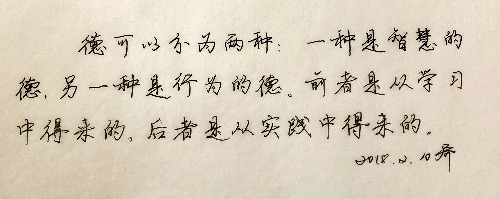 德可以分为两种：一种是智慧的
德，另一种是行为的德。前者是从学习
中得来的，后者是从实践中得来的。
2018.2.10